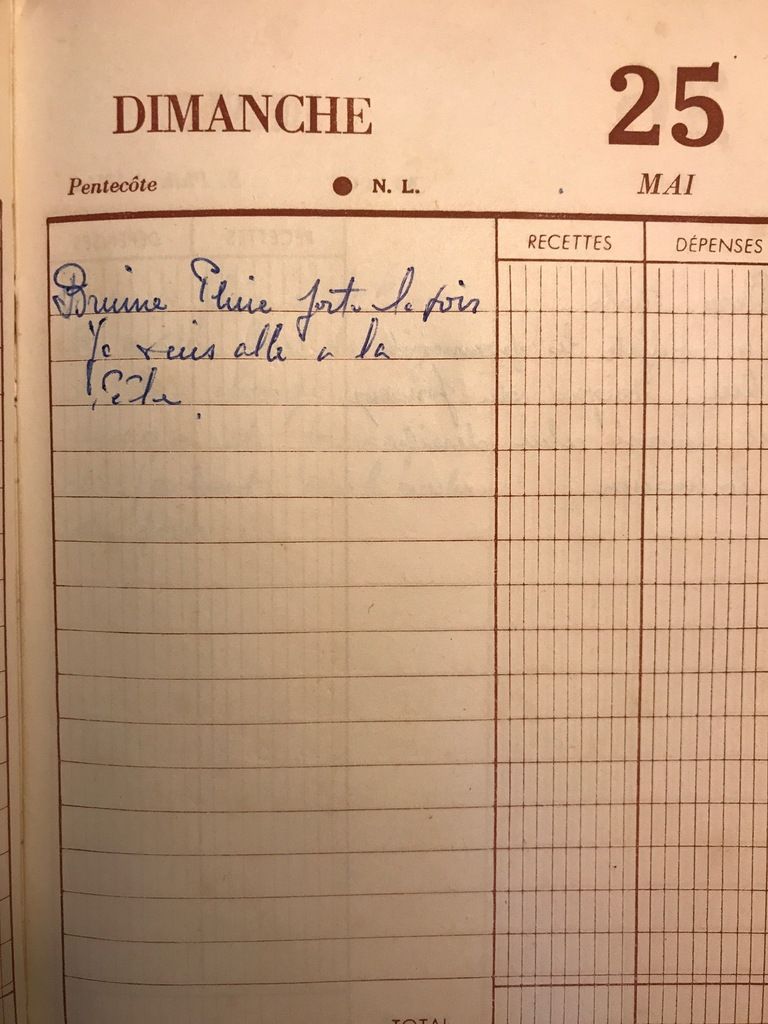 DIMANCHE 25
Pentecôte N. L. MAI
RECETTES DÉPENSES
Bruine Pluie forte le soir
Je suis allé a la
fête.
TOTAL